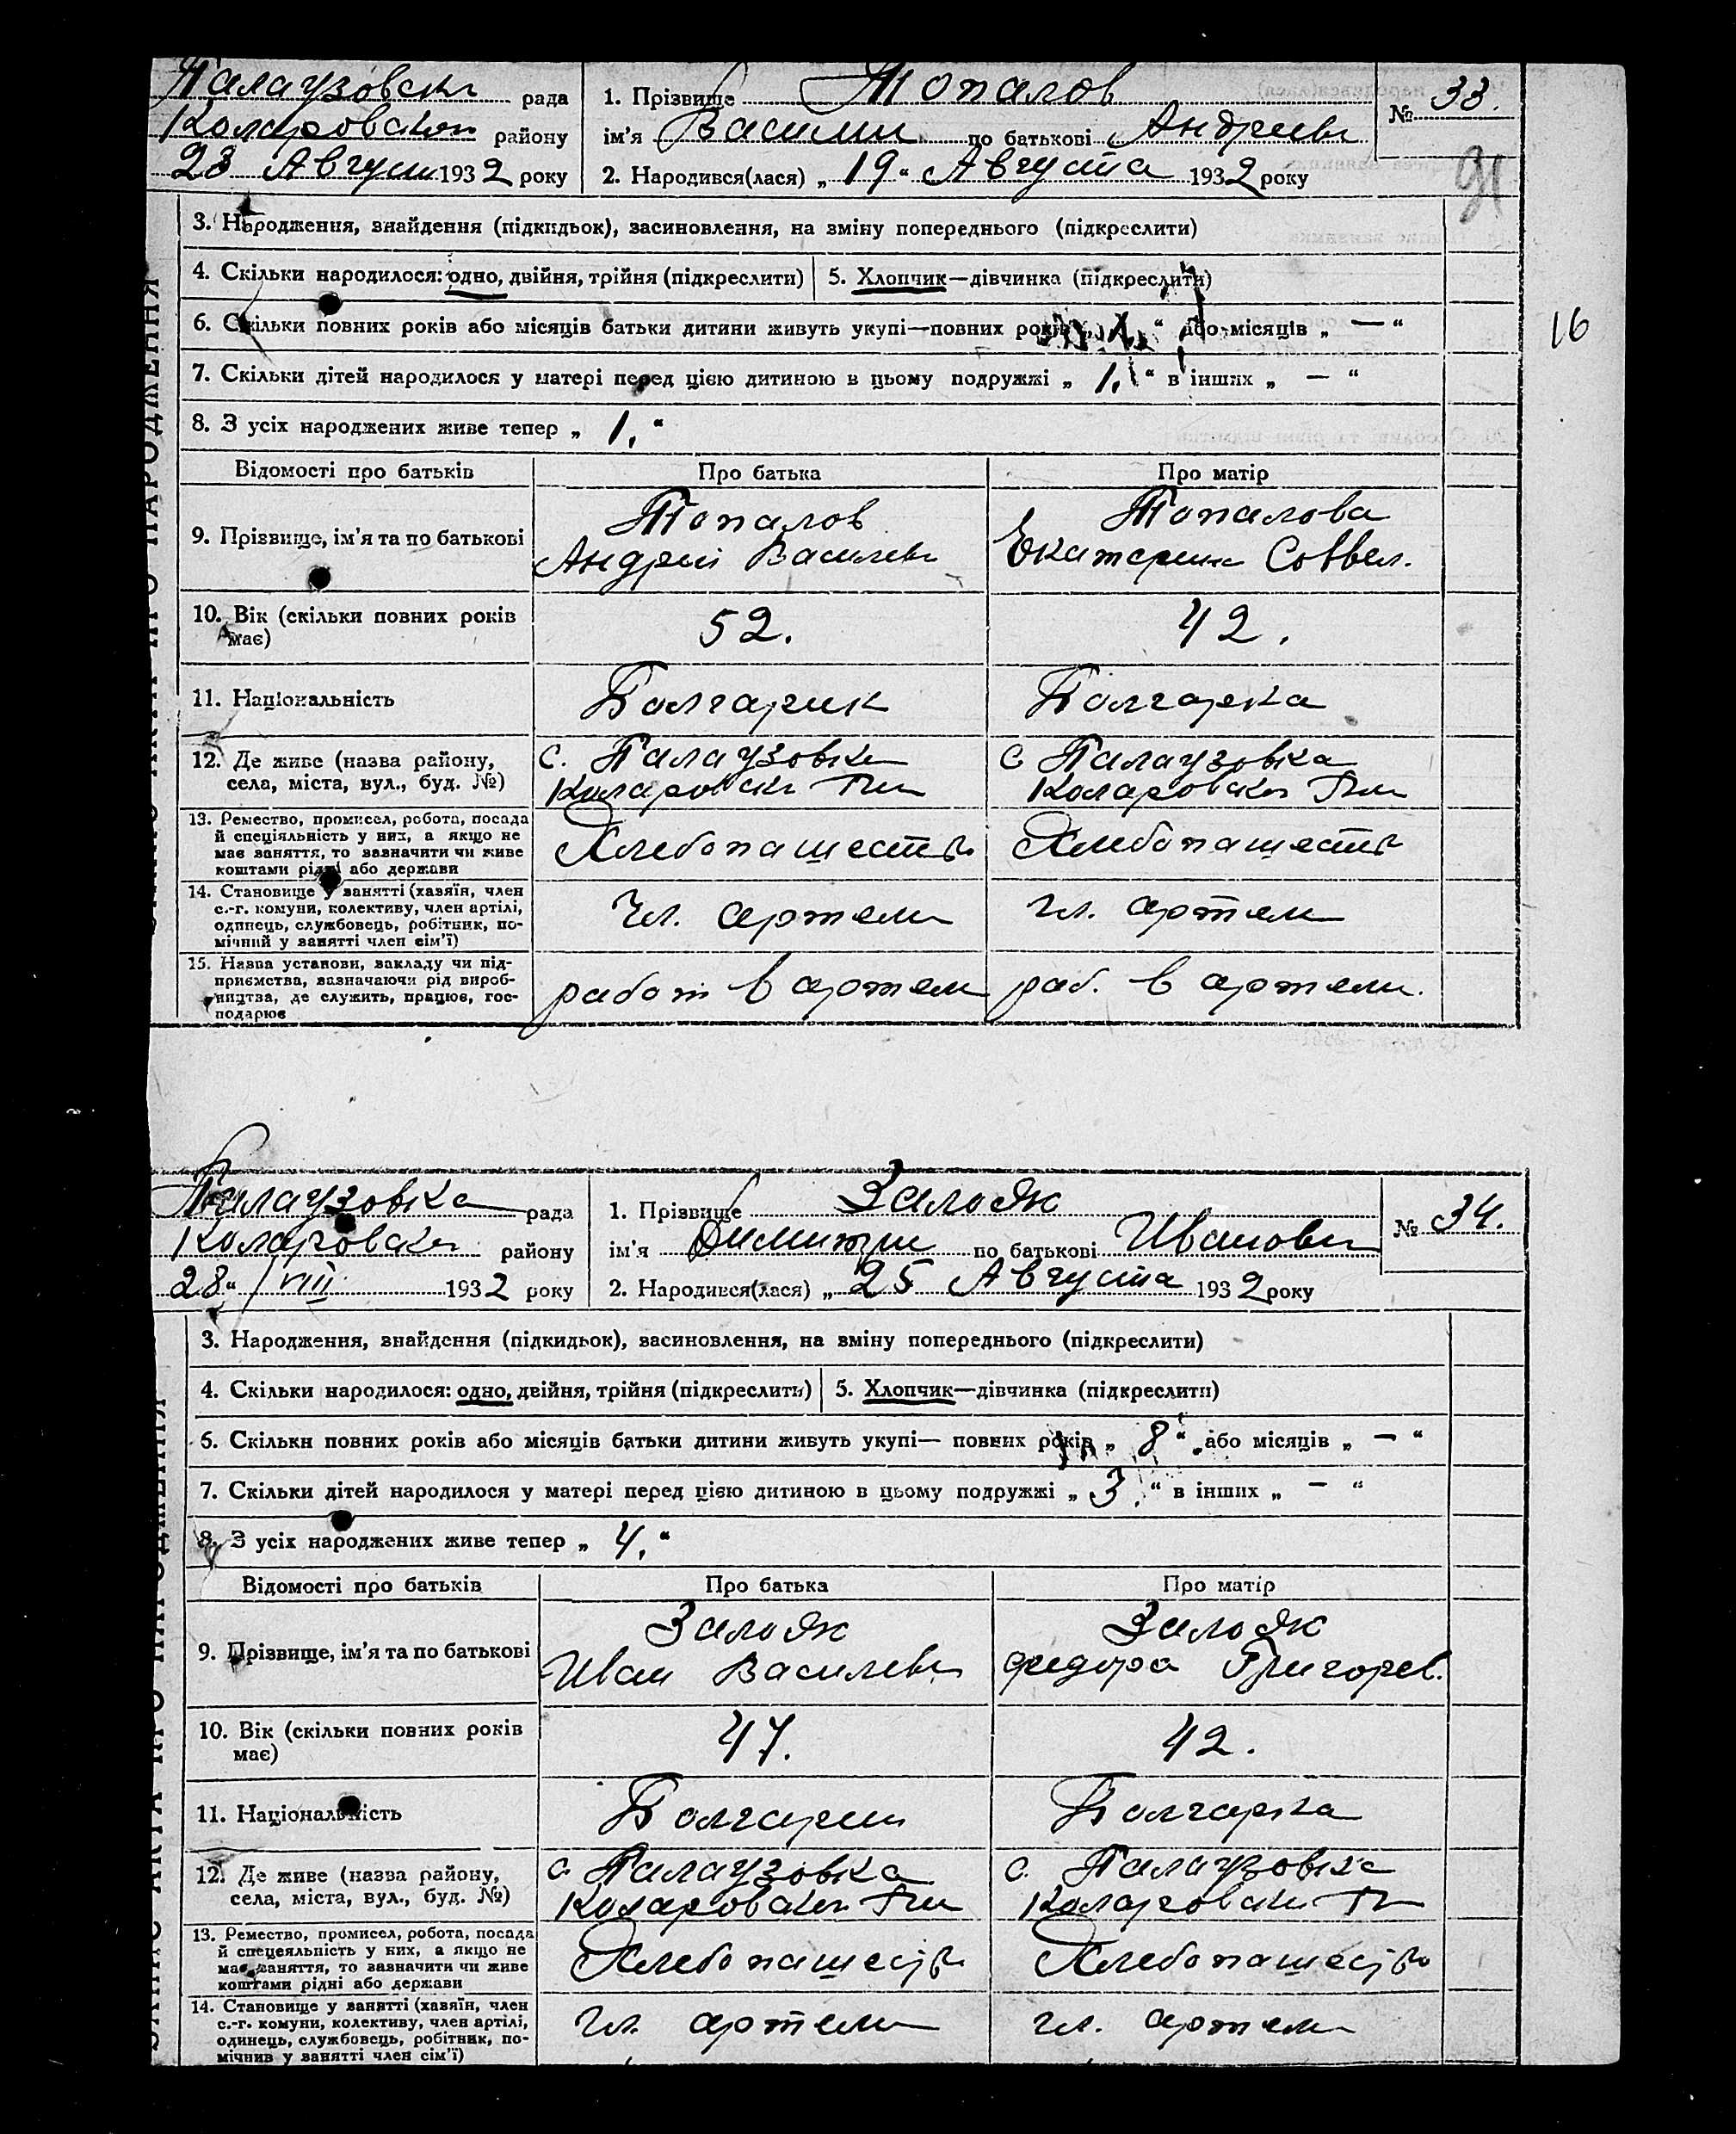 Палаузовска рада
Коларовского району
23 Август 1932 року
1. Прізвище Топалов
ім'я Василий по батькові Андреев
№ 33.
2. Народився(лася) „ 19 “ Августа 1932 року
91
3. Народження, знайдення (підкидьок), засиновлення, на зміну попереднього (підкреслити)
4. Скільки народилося: одно, двійня, трійня (підкреслити) 5. Хлопчик—дівчинка (підкреслити)
6. Скільки повних років або місяців батьки дитини живуть укупі—повних років „ “ або місяців „ — “
16
7. Скільки дітей народилося у матері перед цією дитиною в цьому подружжі „ 1. “ в інших „ — “
8. З усіх народжених живе тепер „ 1. “
Відомості про батьків Про батька Про матір
9. Прізвище, ім'я та по батькові
Топалов Топалова
Андрей Василев Екатерина
10. Вік (скільки повних років має) 52. 42.
11. Національність Болгарин Болгарка
12. Де живе (назва району, села, міста, вул., буд. №)
с. Палаузовка с Палаузовка
Коларовск Коларовск
13. Ремество, промисел, робота, посада
й спеціяльність у них, а якщо не
має заняття, то зазначити чи живе
коштами рідні або держави
Хлебопашеств Хлебопашеств
14. Становище у занятті (хазяїн, член
с.-г. комуни, колективу, член артілі,
одинець, службовець, робітник, по-
мічний у занятті член сім'ї)
чл. артели чл. артели
15. Назва установи, закладу чи під-
приємства, зазначаючи рід вироб-
ництва, де служить, працює, гос-
подарює
работ в артели раб. в артели.
Палаузовка рада
Коларовска району
28 “/VIII 1932 року
1. Прізвище Залояк
ім'я Димитри по батькові Иванови
№ 34.
2. Народився(лася) „ 25 Августа 1932 року
3. Народження, знайдення (підкидьок), засиновлення, на зміну попереднього (підкреслити)
4. Скільки народилося: одно, двійня, трійня (підкреслити) 5. Хлопчик—дівчинка (підкреслити)
6. Скільки повних років або місяців батьки дитини живуть укупі— повних років „ 8 “ або місяців „ — “
7. Скільки дітей народилося у матері перед цією дитиною в цьому подружжі „ 3. “ в інших „ — “
8. З усіх народжених живе тепер „ 4. “
Відомості про батьків Про батька Про матір
9. Прізвище, ім'я та по батькові
Залояк Залояк
Иван Василев Федора Григорев.
10. Вік (скільки повних років має) 47. 42.
11. Національність Болгарин Болгарка
12. Де живе (назва району, села, міста, вул., буд. №)
с. Палаузовка с. Палаузовка
Коларовск Коларовск
13. Ремество, промисел, робота, посада
й спецеяльність у них, а якщо не
має заняття, то зазначити чи живе
коштами рідні або держави
Хлебопашеств Хлебопашество
14. Становище у занятті (хазяїн, член
с.-г. комуни, колективу, член артілі,
одинець, службовець, робітник, по-
мічнив у занятті член сім'ї)
чл. артели чл. артели